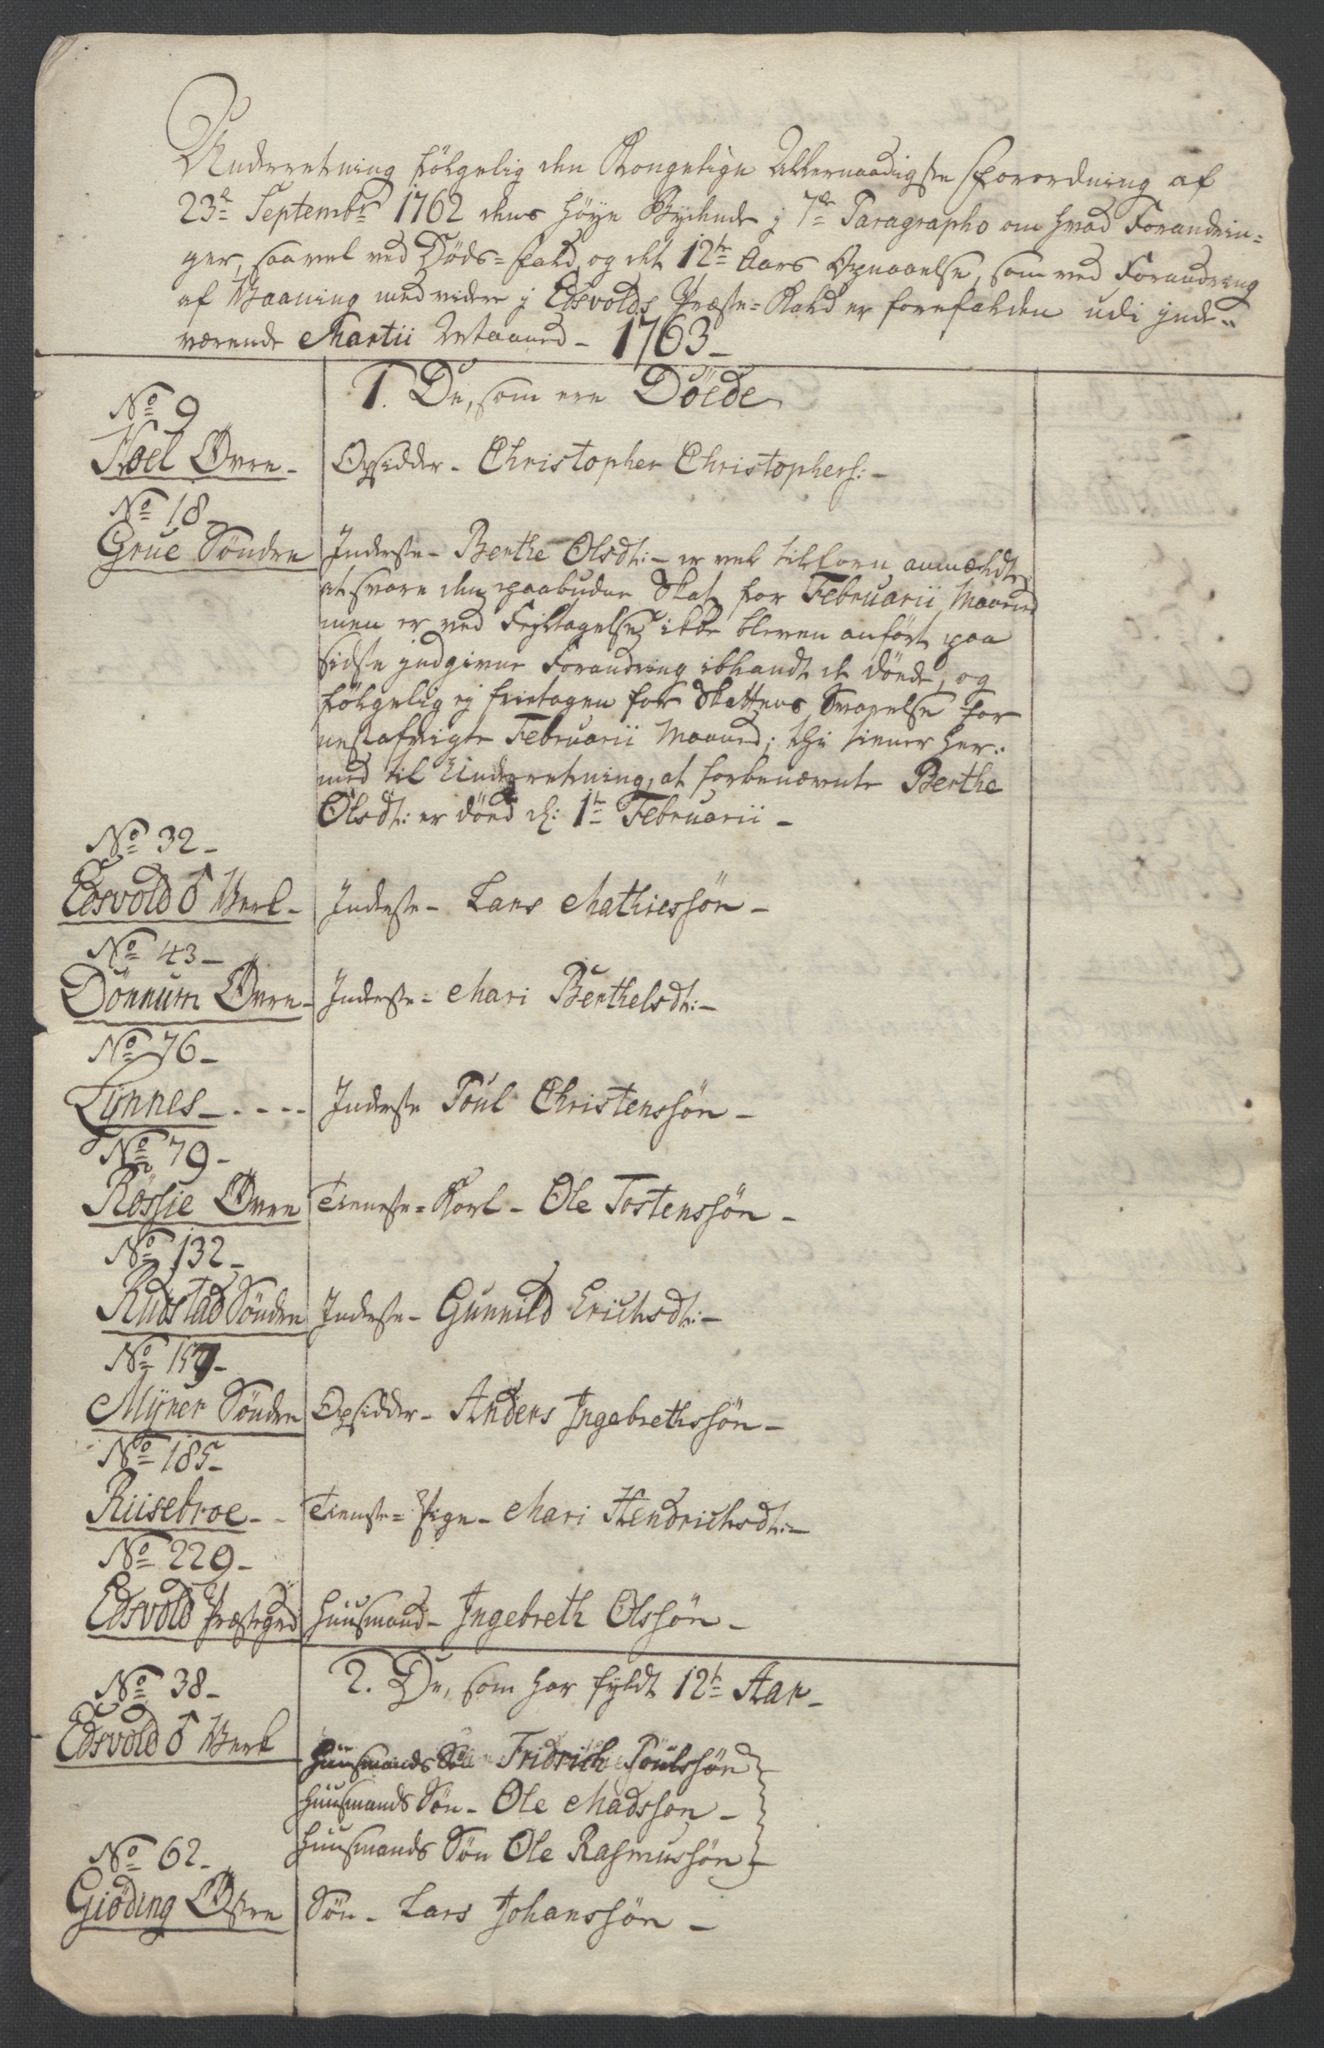 Underretning følgelig den Kongelige Allernaadigste Forordning af
23de Septembr 1762 dens høye Bydende j 7de Paragrapho om hvad Forandrin=
ger, saavel ved Døds=fald og det 12te Aars Opnaaelse, som ved Forandring
af Vaaning med videre j Edsvolds Præste=Kald er forefalden udi jnde=
værende Martii Maaned - 1763 -
1. De, som ere Döede
No 9
Hoel Øvre - Opsidder - Christopher Christophers: -
No 18 -
Grue Söndre Inderste - Berthe Olsdt: - er vel tilforn anmældt
at svare den paabudne Skat for Februarii Maaned
men er ved Fejltagelse ikke bleven anført paa
sidste jndgivne Forandring iblandt de döede, og
følgelig ej frietagen for Skattens Svarelse for
nestafvigte Februarii Maaned; thi tiener her=
med til Underretning, at forbenævnte Berthe
Olsdt: er död d: 1te Februarii -
No 32 -
Edsvolds Verk - Inderste - Lars Mathiessøn -
No 43 -
Dönnum Øvre - Inderste - Mari Berthelsdt: -
No 76 -
Lÿnnes - . - - - Inderste Poul Christenssøn -
No 79 -
Rössie Øvre Tieneste=Karl - Ole Tostenssøn -
No 132 -
Rudstad Söndre Inderste - Gunnild Erichsdt: -
No 159 -
Mÿrer Söndre Opsidder - Anders Ingebrethssøn -
No 185 -
Riisebroe - - Tieneste=Pige - Mari Hendrichsdt: -
No 229 -
Edsvold Præstegrd Huusmand - Ingebreth Olssøn -
2. De, som har fyldt 12te Aar -
No 38 -
Edsvolds Verk Huusmands Søn Fridrich Poulssøn
Huusmands Søn - Ole Madssøn -
Huusmands Søn Ole Rasmussøn -
No 62 -
Giöding Østre Søn - Lars Johanssøn -